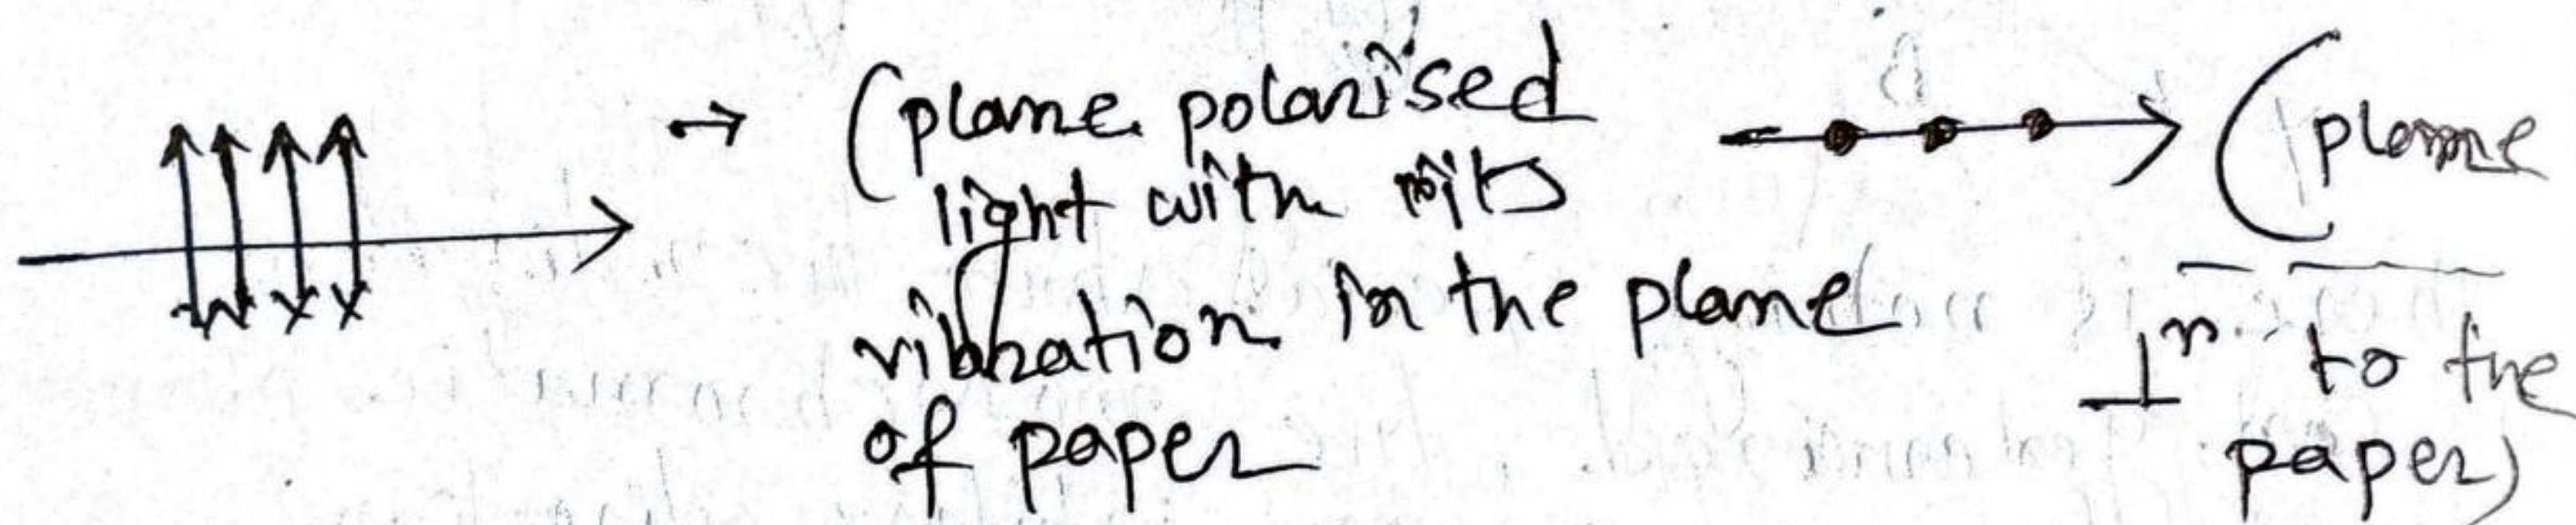 → (plane polarised
light with its
vibration in the plane
of paper
(plane
⊥r to the
paper)